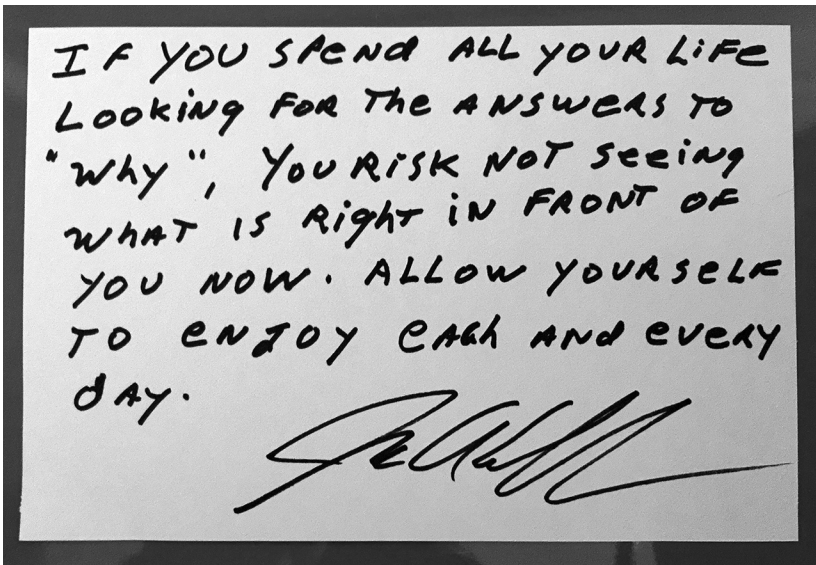 If you spend all your life
looking for the answers to
"why", you risk not seeing
what is right in front of
you now. Allow yourself
to enjoy each and every
day.